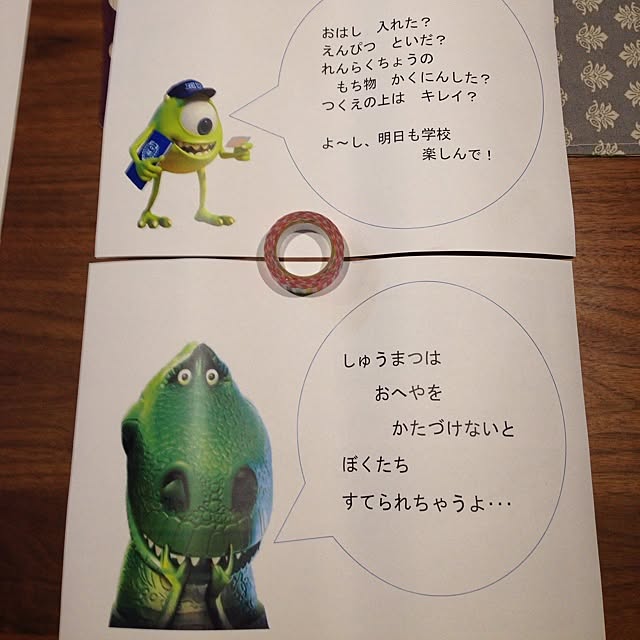 おはし　入れた？
えんぴつ　といだ？
れんらくちょうの
もち物　かくにんした？
つくえの上は　キレイ？
よ～し、明日も学校
楽しんで！
しゅうまつは
おへやを
かたづけないと
ぼくたち
すてられちゃうよ・・・